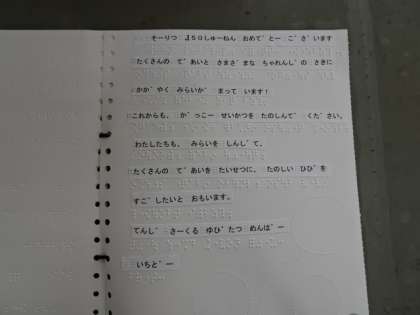 そーりつ １５０しゅーねん おめで゛とー ご゛さ゛います
たくさんの て゛あいと さまさ゛まな ちゃれんし゛の さきに
かか゛やく みらいか゛ まって います！
これからも、 か゛っこー せいかつを たのしんて゛ くた゛さい。
わたしたちも、 みらいを しんし゛て、
たくさんの て゛あいを たいせつに、 たのしい ひひ゛を
すこ゛したいと おもいます。
てんし゛ さーくる ゆひ゛たつ めんは゛ー
いちと゛ー